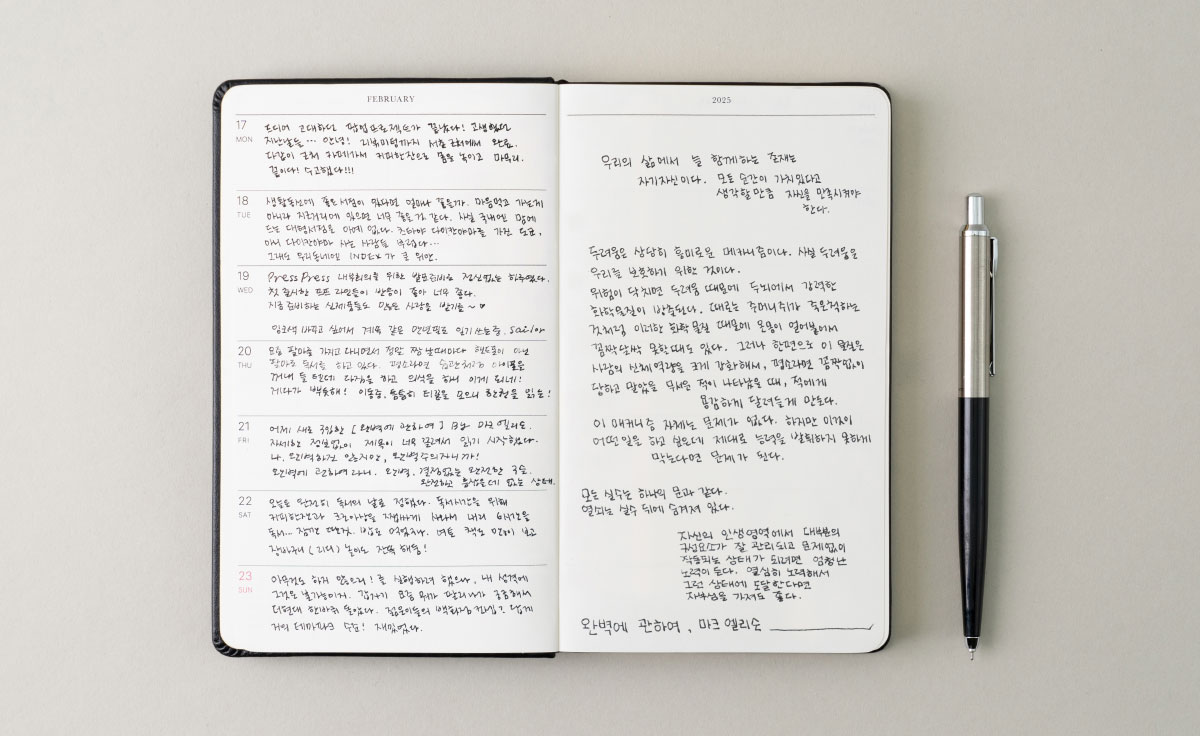 FEBRUARY
17
MON
드디어 고대하던 팝업 프로젝트가 끝났다! 고생했던
지난날들… 안녕! 리뷰미팅까지 서울 에서 완료.
다같이 근처 카페가서 커피한잔으로 몸을 녹이고 마무리.
끝이다! 수고했다!!!
18
TUE
생활동선에 좋은 서점이 있다면 얼마나 좋을까. 마음먹고 가는게
아니라 지근거리에 있으면 너무 좋을 것 같다. 사실 국내엔 맘에
드는 대형서점은 아예 없다. 츠타야 다이칸야마를 가진 도쿄,
아니 다이칸야마 사는 사람들 부럽다…
그래도 우리동네엔 INDEX가 큰 위안.
19
WED
Press Press 내부회의를 위한 발표준비로 정신없는 하루였다.
첫 출시한 프프 라인들이 반응이 좋아 너무 좋다.
지금 준비하는 신제품들도 많은 사랑을 받기를 ~ ♥
잉크색 바꾸고 싶어서 계속 같은 만년필로 일기 쓰는중. sailor
20
THU
요즘 팔마를 가지고 다니면서 정말 짬 날때마다 핸드폰이 아닌
팔마로 독서를 하고 있다. 평소라면 습관처럼 아이폰을
꺼내 들 텐데 다짐을 하고 의식을 하니 이게 되네!
게다가 뿌듯해! 이동중, 틈틈히 티끌을 모으니 한권을 읽는!
21
FRI
어제 새로 구입한 [완벽에 관하여] By 마크 엘리슨.
자세한 정보없이 제목이 너무 끌려서 읽기 시작했다.
나. 완벽하진 않지만, 완벽주의자니까!
완벽에 관하여라니. 완벽. 결점없는 완전한 구슬.
완전하고 흠잡을데 없는 상태.
22
SAT
오늘은 완전히 독서의 날로 정했다. 독서시간을 위해
커피한잔과 크로아상을 재빠르게 사와서 내리 6시간을
독서… 잠깐 딴짓. 밥도 먹었지만. 며칠 책도 많이 보고
장바구니 (리디) 놀이도 잔뜩 해둠!
23
SUN
아무것도 하지 않으리! 를 실행하려 했으나, 내 성격에
그것은 불가능이지. 갑자기 요즘 뭐가 팔리나가 궁금해서
더현대 한바퀴 돌았다. 젊은이들의 백화점 컨셉답게
거의 테마파크 수준! 재밌었다.
2025
우리의 삶에서 늘 함께하는 존재는
자기자신이다. 모든 순간이 가치있다고
생각할 만큼 자신을 만족시켜야
한다.
두려움은 상당히 흥미로운 메카니즘이다. 사실 두려움은
우리를 보호하기 위한 것이다.
위험이 닥치면 두려움 때문에 두뇌에서 강력한
화학물질이 방출된다. 때로는 주머니쥐가 죽은척하는
것처럼 이러한 화학물질 때문에 온몸이 얼어붙어서
꼼짝달싹 못할때도 있다. 그러나 한편으로 이 물질은
사람의 신체역량을 크게 강화해서, 평소라면 꼼짝없이
당하고 말았을 무서운 적이 나타났을 때, 적에게
용감하게 달려들게 만든다.
이 메커니즘 자체는 문제가 없다. 하지만 이것이
어떤 일을 하고 싶은데 제대로 능력을 발휘하지 못하게
막는다면 문제가 된다.
모든 실수는 하나의 문과 같다.
열쇠는 실수 뒤에 숨겨져 있다.
자신의 인생영역에서 대부분의
구성요소가 잘 관리되고 문제없이
작동되는 상태가 되려면 엄청난
노력이 든다. 열심히 노력해서
그런 상태에 도달한다면
자부심을 가져도 좋다.
완벽에 관하여, 마크 엘리슨